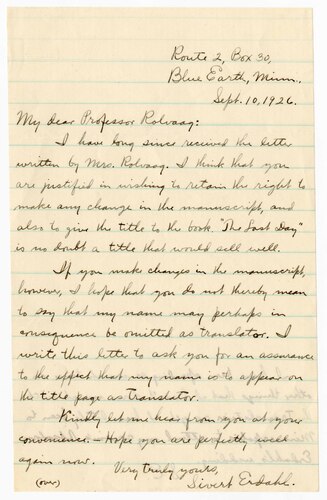 Route 2, Box 30,
Blue Earth, Minn.
Sept. 10, 1926.
My dear Professor Rolvaag:
I have long since received the letter
written by Mrs. Rolvaag. I think that you
are justified in wishing to retain the right to
make any change in the manuscript, and
also to give the title to the book. "The Last Day"
is no doubt a title that would sell well.
If you make changes in the manuscript,
however, I hope that you do not thereby mean
to say that my name may perhaps in
consequence be omitted as translator. I
write this letter to ask you for an assurance
to the effect that my name is to appear on
the title page as translator.
Kindly let me hear from you at your
convenience. – Hope you are perfectly well
again now.
Very truly yours,
Sivert Erdahl.
(over)